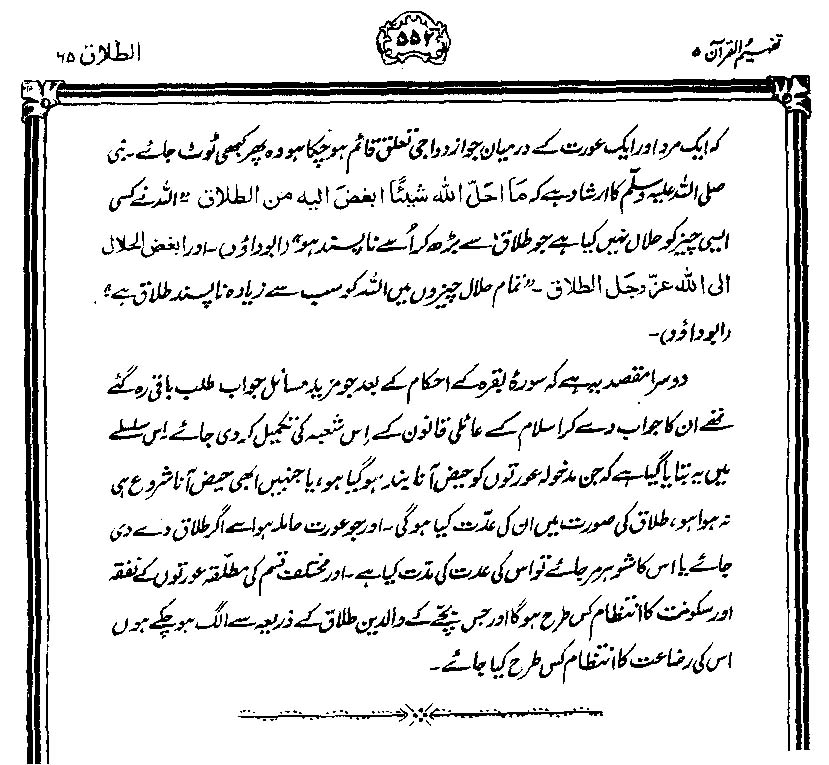 تفہیم القرآن ۵
۵۵۲
الطلاق ۶۵
کہ ایک مرد اور ایک عورت کے درمیان جو ازدواجی تعلق قائم ہو چکا ہو وہ پھر کبھی ٹوٹ جائے۔ نبی
صلی اللہ علیہ وسلم کا ارشاد ہے کہ مَا احَلّ اللہ شیئًا ابغضَ الیہ من الطلاق "اللہ نے کسی
ایسی چیز کو حلال نہیں کیا ہے جو طلاق سے بڑھ کر اُسے ناپسند ہو" (ابوداؤد)۔ اور ابغض الحلال
الی اللہ عزّوجَل الطلاق۔ "تمام حلال چیزوں میں اللہ کو سب سے زیادہ ناپسند طلاق ہے"
(ابوداؤد)۔
دوسرا مقصد یہ ہے کہ سورۂ بقرہ کے احکام کے بعد جو مزید مسائل جواب طلب باقی رہ گئے
تھے ان کا جواب دے کر اسلام کے عائلی قانون کے اِس شعبہ کی تکمیل کر دی جائے۔ اِس سلسلے
میں یہ بتایا گیا ہے کہ جن مدخولہ عورتوں کو حیض آنا بند ہو گیا ہو، یا جنہیں ابھی حیض آنا شروع ہی
نہ ہوا ہو، طلاق کی صورت میں ان کی عدّت کیا ہوگی۔ اور جو عورت حاملہ ہو اسے اگر طلاق دے دی
جائے یا اس کا شوہر مر جائے تو اس کی عدت کی مدّت کیا ہے۔ اور مختلف قسم کی مطلّقہ عورتوں کے نفقہ
اور سکونت کا انتظام کس طرح ہوگا اور جس بچّے کے والدین طلاق کے ذریعہ سے الگ ہو چکے ہوں
اس کی رضاعت کا انتظام کس طرح کیا جائے۔